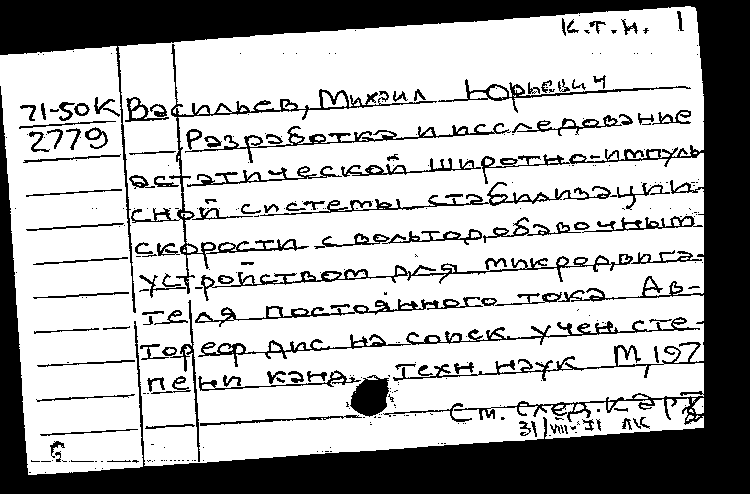 К.Т.Н. 1
71-50К Васильев, Михаил Юрьевич
2779 Разработка и исследование
астатической широтно-импуль-
сной системы стабилизации
скорости с вольтодобавочным
устройством для микродвига-
теля постоянного тока Ав-
тореф. дис на соиск. учен. сте-
пени канд. техн. наук М, 197
См. след. карт
31/VIII-71 ЛК